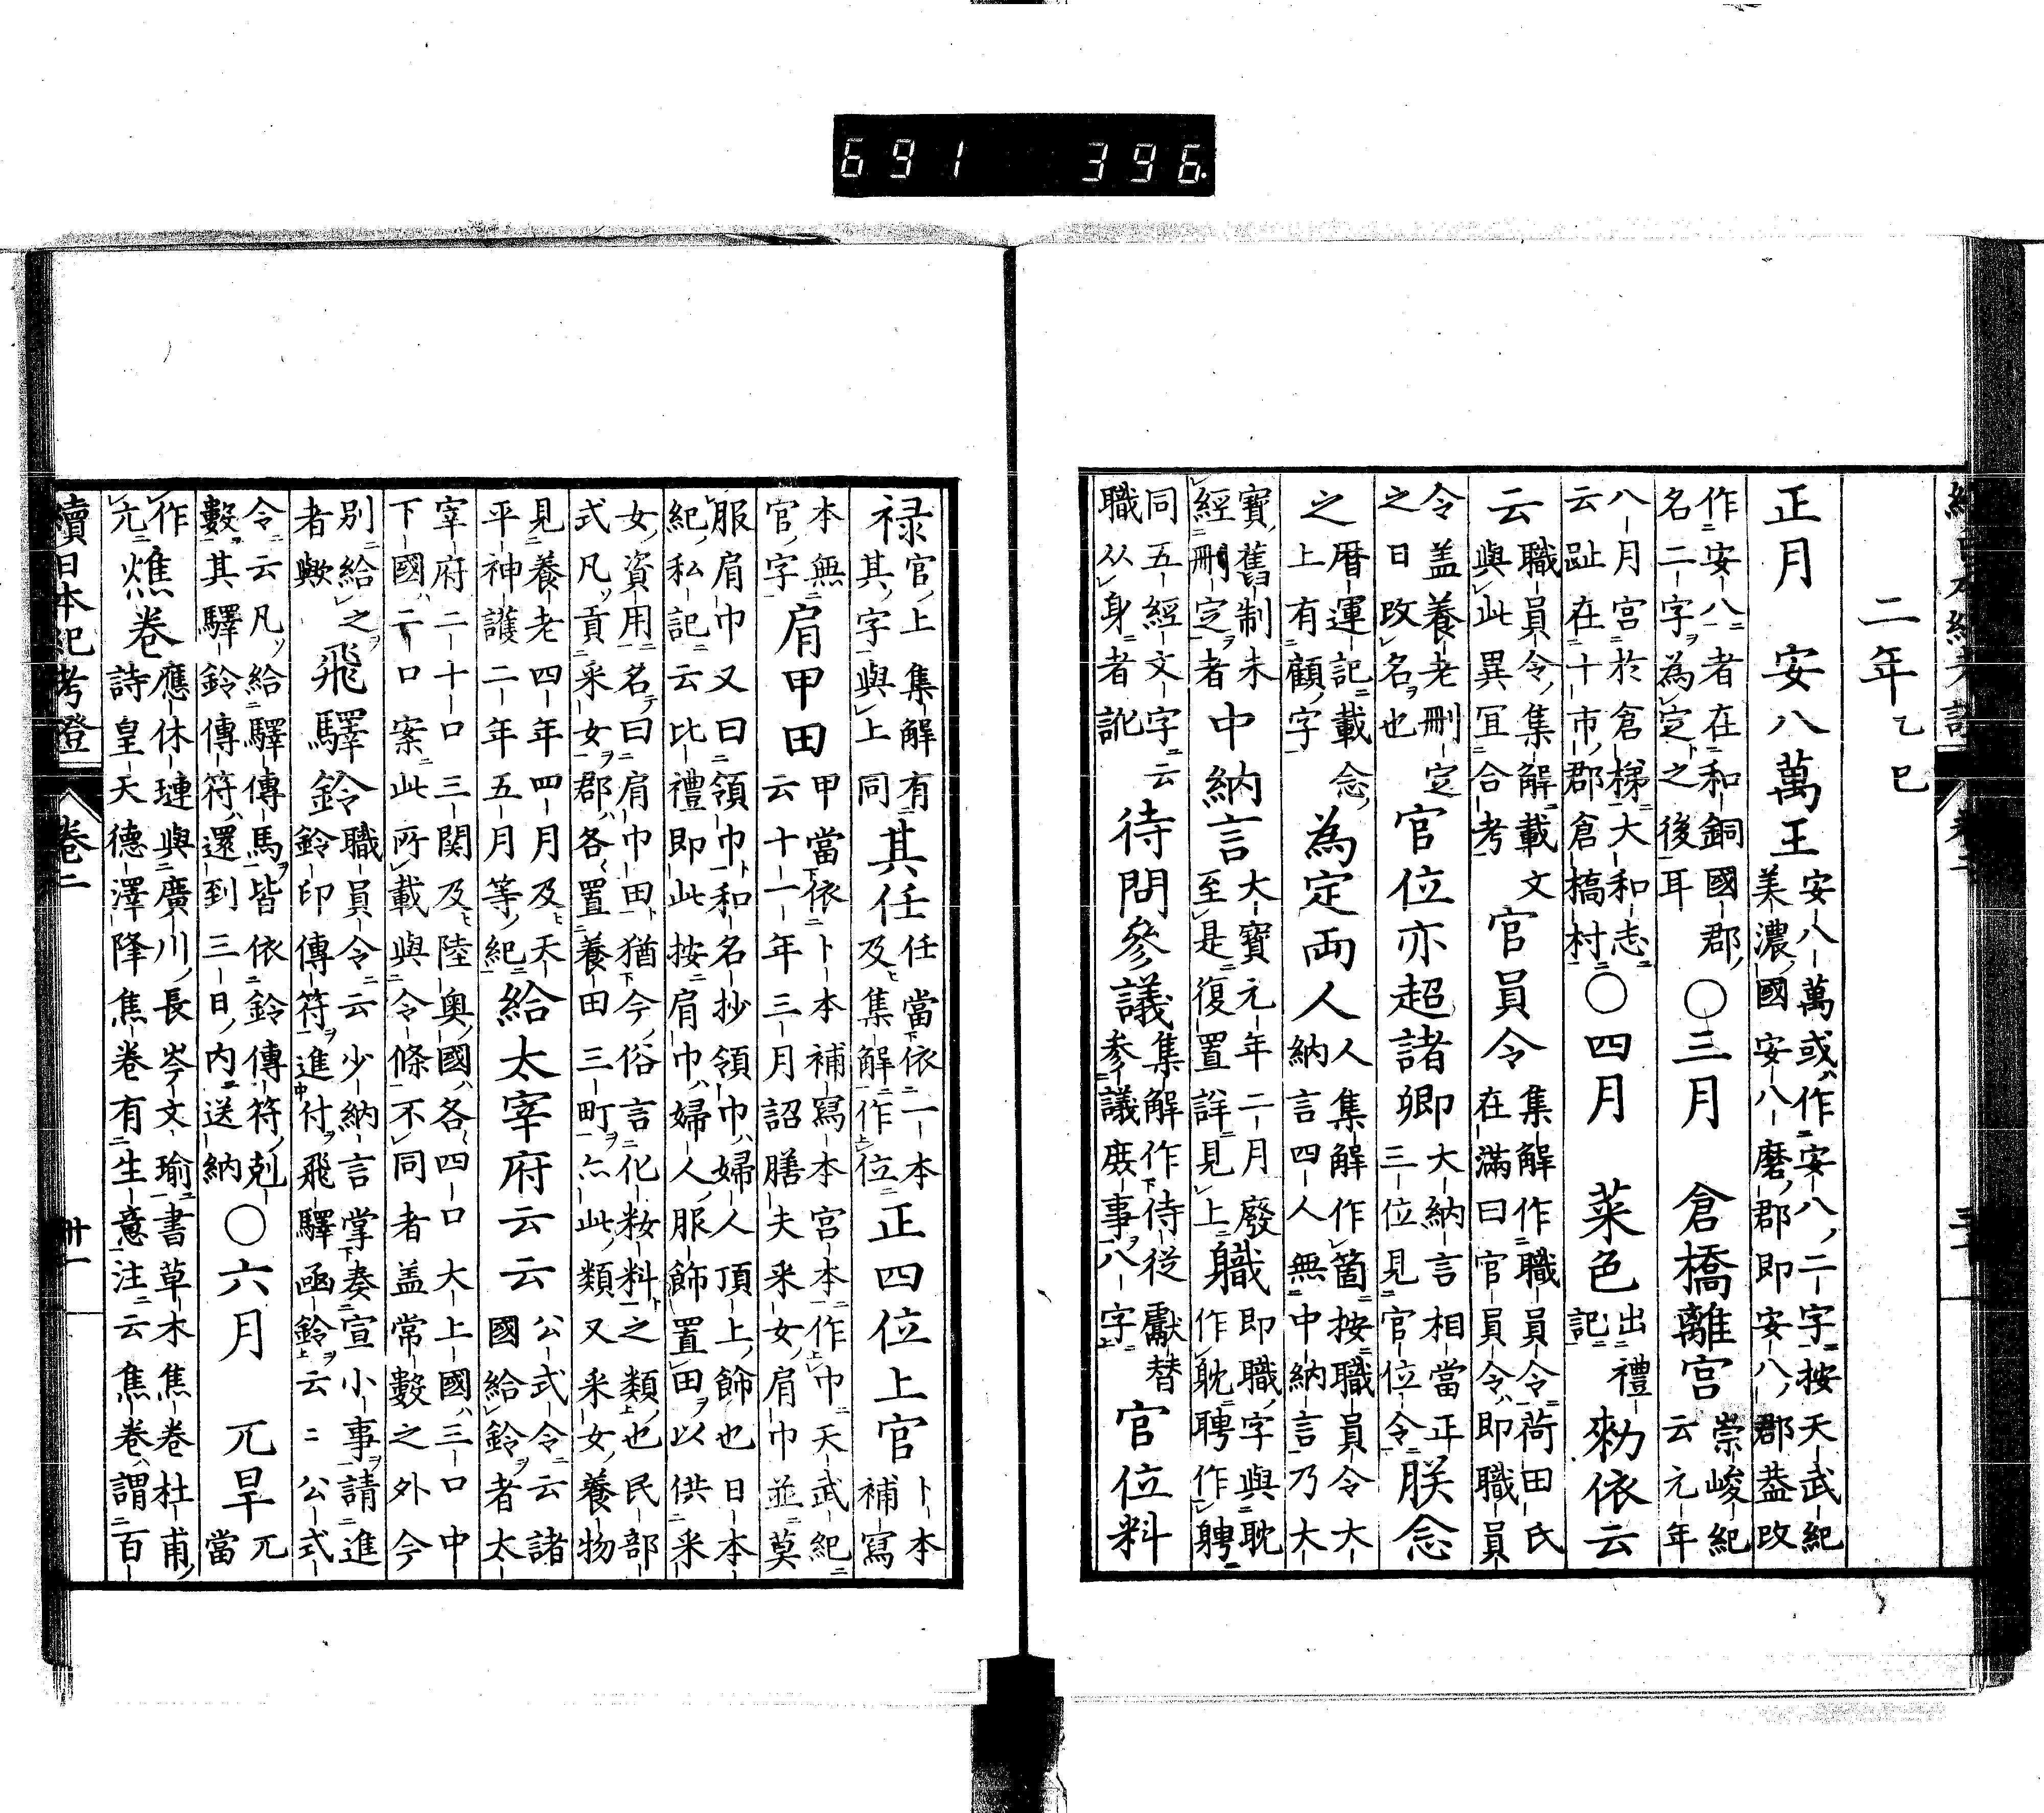 二年乙巳
正月　安八萬王安八萬或作安八二字按天武紀
美濃國安八磨郡即安八郡葢改
作安八者在和銅國郡
名二字為定之後耳○三月　倉橋離宮崇峻紀
云元年
八月宮於倉梯大和志
云趾在十市郡倉橋村○四月　菜色出禮
記勑依云
云職員令集解載文
與此異宜合考官員令集解作職員令荷田氏
在滿曰官員令即職員
令盖養老刪定
之日改名也官位亦超諸卿大納言相當正
三位見官位令朕念
之曆運記載念
上有顧字為定両人人集解作箇按職員令大
納言四人無中納言乃大
寶舊制未
經刪定者中納言大寶元年二月廢
至是復置詳見上軄即職字與耽
作躭聘作䏈
同五經文字云
職从身者訛待問參議集解作侍從獻替
参議庶事八字官位料
禄官上集解有
其字與上同其任任當依一本
及集解作位正四位上官卜本
補寫
本無
官字肩甲田甲當依卜本補寫本宮本作巾天武紀
云十一年三月詔膳夫釆女肩巾並莫
服肩巾又曰領巾和名抄領巾婦人頂上飾也日本
紀私記云比禮即此按肩巾婦人服飾置田以供采
女資用名曰肩巾田猶今俗言化粧料之類也民部
式凡貢采女郡各置養田三町亦此類又采女養物
見養老四年四月及天
平神護二年五月等紀給太宰府云云公式令云諸
國給鈴者太
宰府二十口三関及陸奥國各四口大上國三口中
下國二口案此所載與令條不同者盖常數之外今
別給之
者歟飛驛鈴職員令云少納言掌奏宣小事請進
鈴印傳符進付飛驛函鈴云〻公式
令云凡給驛傳馬皆依鈴傳符剋
數其驛鈴傳符還到三日内送納○六月　兀旱兀
當
作
亢燋卷應休璉與廣川長岑文瑜書草木焦卷杜甫
詩皇天德澤降焦卷有生意注云焦卷謂百
續日本紀考證　卷二　卅一
691 396